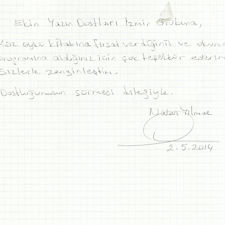 Ekin Yazın Dostları İzmir Grubuna,
kitabıma fırsat verdiğiniz ve okuma
programına aldığınız için çok teşekkür ederim
Sizlerle zenginleştim.
Dostluğumuzun sürmesi dileğiyle.
2.5.2014